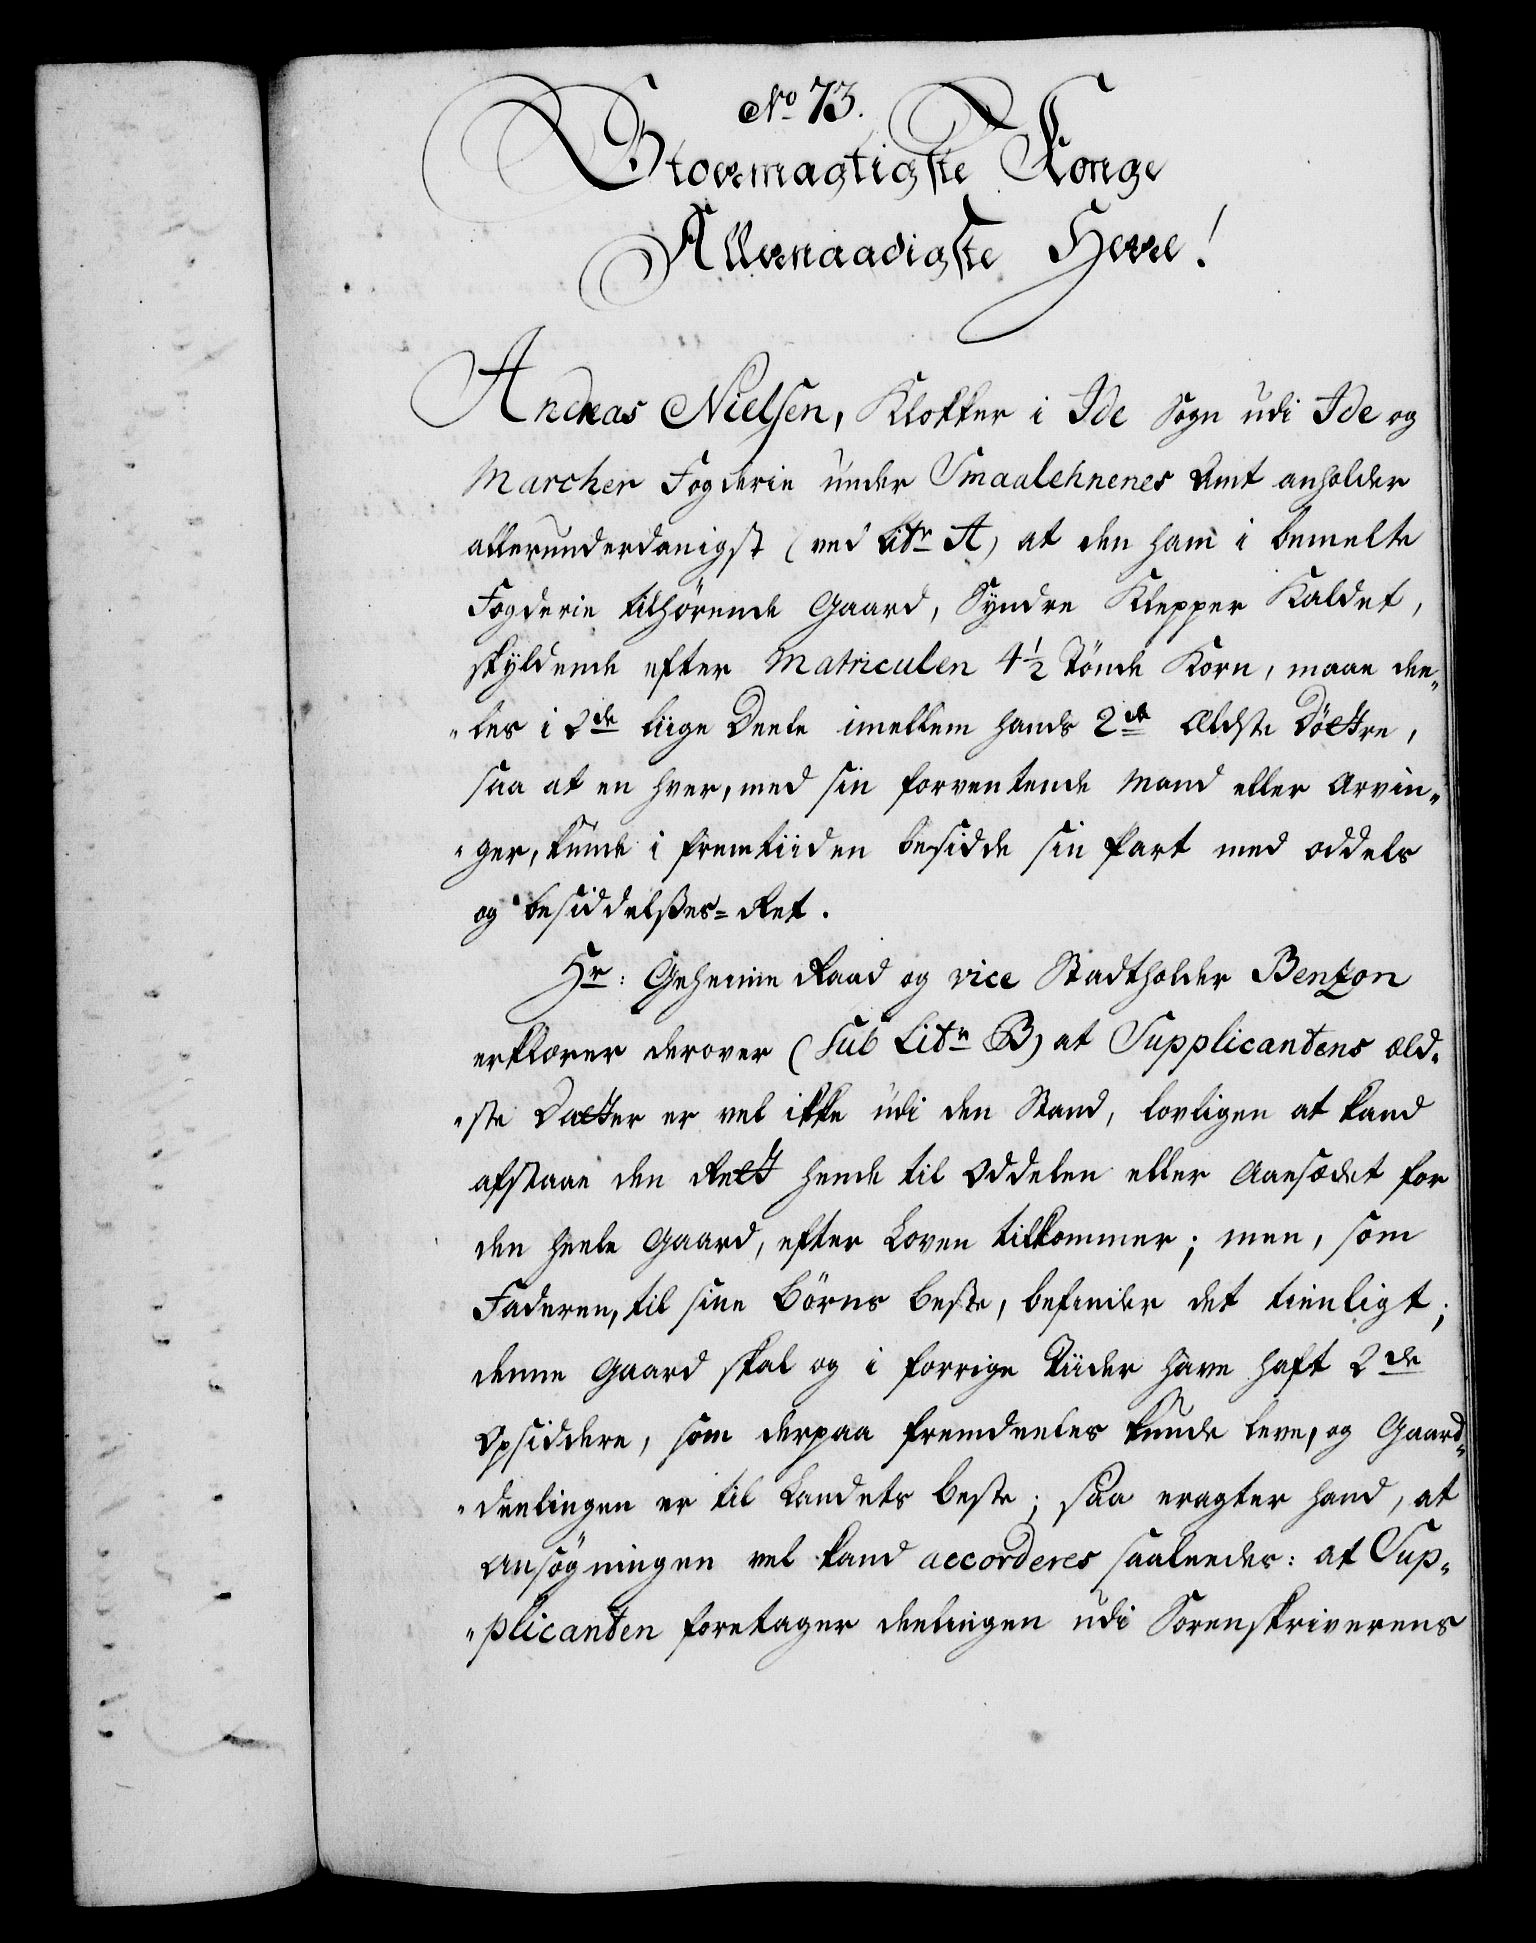 No 73.
Stormægtigste Konge
Allernaadigste Herre!
Andreas Nielsen, Klokker i Ide Sogn udi Ide og
Marcher Fogderie under Smaalehnenes Amt anholder
allerunderdanigst (ved Litr A) at den ham i bemelte
Fogderie tilhørende Gaard, Syndre Klepper Kaldet,
skyldende efter Matriculen 4½ Tønde Korn, maae dee„
„les i 2de liige Deele imellem hands 2de Ældste Døttre,
saa at en hver, med sin forventende Mand eller Arvin„
„ger, kunde i fremtiiden besidde sin Part med oddels
og besiddelsses=Ret.
Hr: Geheime Raad og vice Stadtholder Benzon
erklærer derover (Sub Litr B) at Supplicantens æld„
„ste Datter er vel ikke udi den Stand, lovligen at kand
afstaae den Rett hende til Oddelen eller Aaesædet for
den heele Gaard, efter Loven tilkommer; men, som
Faderen, til sine Børns beste, befinder det tienligt;
denne Gaard skal og i forrige Tiider have haft 2de
Opsiddere, som derpaa fremdeeles kunde leve, og Gaard„
„deelingen er til Landets beste; saa eragter hand, at
Ansøgningen vel kand accorderes saaleedes: at Sup„
„plicanten foretager deelingen udi Sorenskriverens